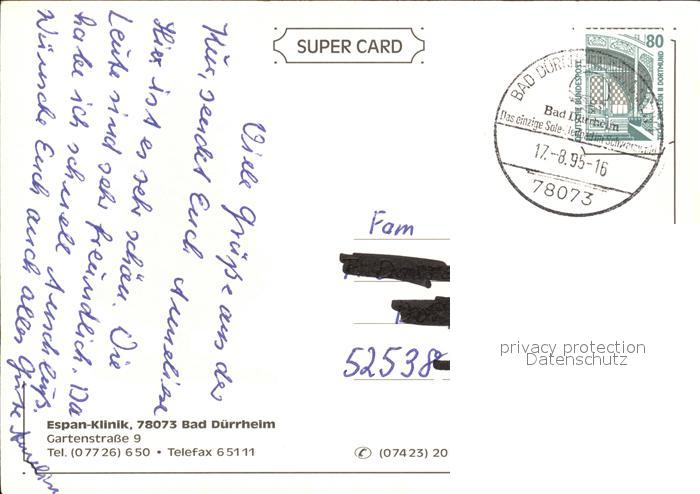 SUPER CARD
80
DEUTSCHE BUNDESPOST
DORTMUND
BAD
Bad Dürrheim
Das einzige Sole-
17.-8.95-16
78073
Viele Grüße aus der
Kur, sendet Euch Anneliese
Hier ist es sehr schön. Die
Leute sind sehr freundlich. Da
habe ich schnell Anschluß.
Wünsche Euch auch alles Gute
Fam
52538
Espan-Klinik, 78073 Bad Dürrheim
Gartenstraße 9
Tel. (07726) 650 • Telefax 65111
✆ (07423) 20
privacy protection
Datenschutz